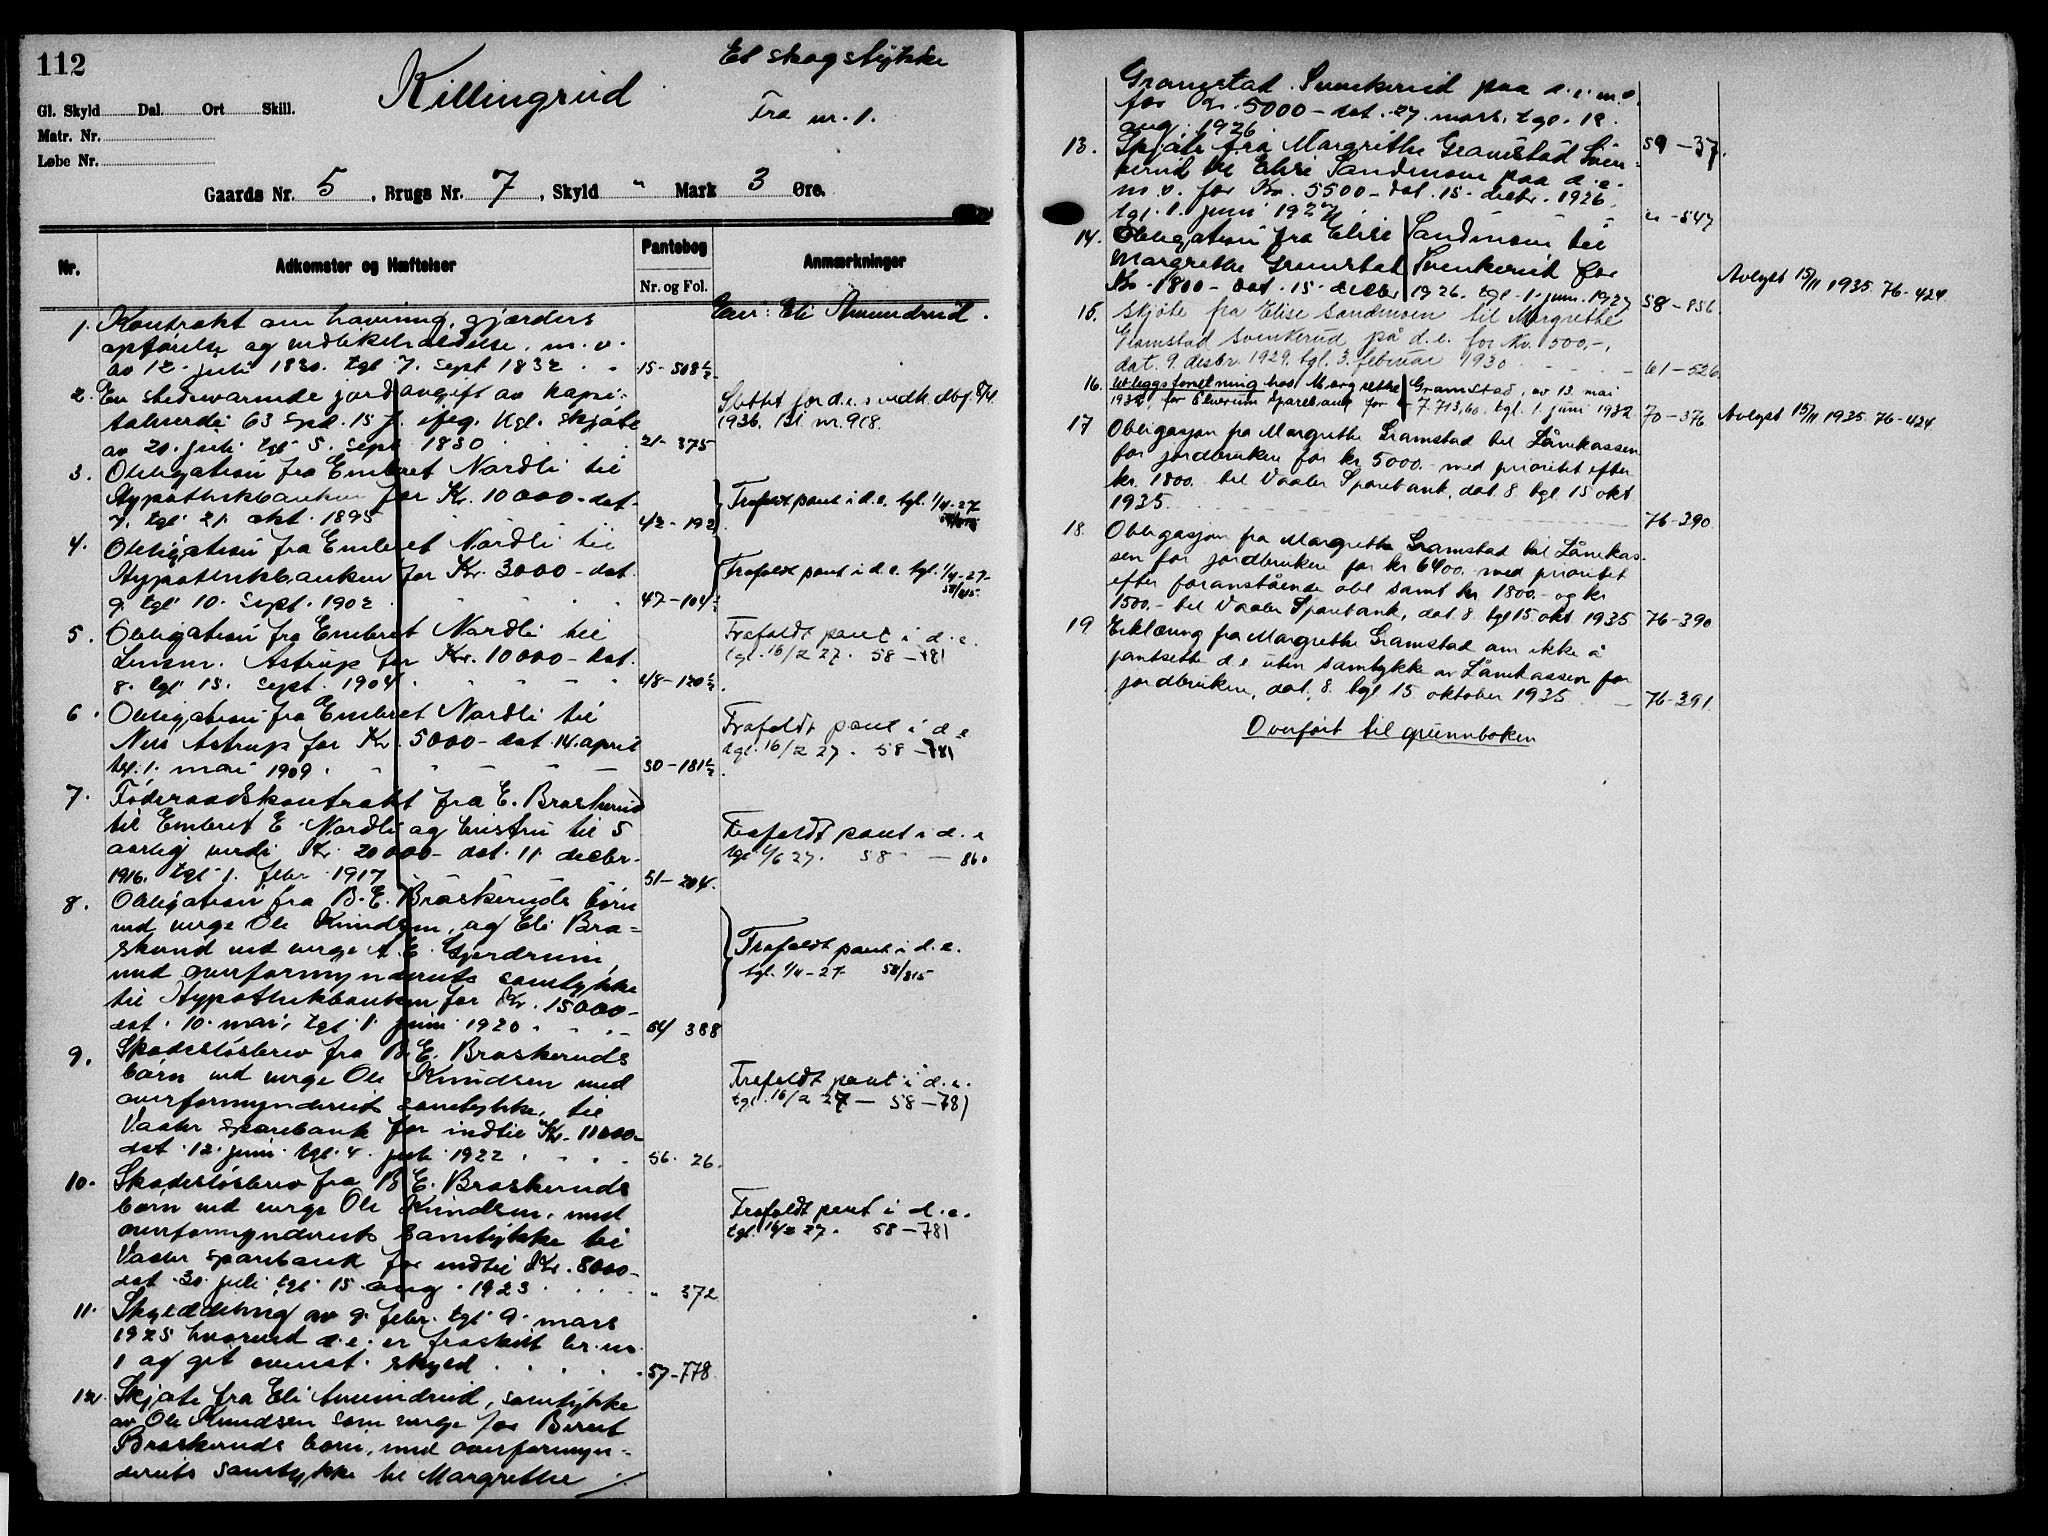 112
Killingrud
Et skogstykke
Fra nr. 1.
Gl. Skyld Dal. Ort Skill.
Matr. Nr.
Løbe Nr.
Gaards Nr. 5, Brugs Nr. 7, Skyld " Mark 3 Øre.
Nr. Adkomster og Hæftelser Pantebog Nr. og Fol. Anmærkninger
Eier: Eli Amundrud.
1. Kontrakt om havning, gjærders
opførelse og vedlikeholdelse m.v.
av 12. juli 1830. tgl. 7. sept 1832 15-508½
2. En stedsevarende jordavgift av kapi-
talverdi 63 spd. 15 s. iføg. kgl. skjøte
av 20. juli tgl 5. sept 1850 21-375
Slettet for d.e.s vedk.
1936. Bl. nr. 968.
3. Obligation fra Embret Nordli til
Hypothekbanken for Kr. 10000- dat.
7. tgl. 21. okt. 1895 42-192
Frafaldt pant i d.e. tgl. 1/4-27
4. Obligation fra Embret Nordli til
Hypothekbanken for Kr. 3000- dat.
9. tgl. 10. sept. 1902 47-104
Frafaldt pant i d.e. tgl. 1/4-27-
58/815.
5. Obligation fra Embret Nordli til
Lensm. Astrup for Kr. 10000- dat.
8. tgl. 15. sept. 1904 48-120½
Frafaldt pant i d.e.
tgl. 16/2 27. 58-781
6. Obligation fra Embret Nordli til
Nils Astrup for Kr. 5000- dat. 14. april
tgl. 1. mai 1909 50-181½
Frafaldt pant i d.e
tgl. 16/2 27. 58-781
7. Føderaadskontrakt fra E. Braskerud
til Embret E. Nordli og hustru til 5
aarlig verdi Kr. 20000- dat. 11. decbr.
1916. tgl. 1. febr. 1917 51-204.
Frafaldt pant i d.e
tgl. 1/6 27. 58 - 860
8. Obligation fra B. E. Braskeruds børn
ved verge Ole Knudsen, og Eli Bra-
skerud ved verge A. E. Gjerdrum,
med overformynderiets samtykke
til Hypothekbanken for Kr. 15000-
dat. 10. mai, tgl. 1. juni 1920 54 388
Frafaldt pant i d.e.
tgl. 1/4-27. 58/815
9. Skadesløsbrev fra B. E. Braskeruds
børn ved verge Ole Knudsen med
overformynderiets samtykke, til
Vaaler sparebank for indtil Kr. 11000-
dat. 12. juni tgl. 4. juli 1922 56. 26.
Frafaldt pant i d.e.
tgl. 16/2 27 - 58-781
10. Skadesløsbrev fra B. E. Braskeruds
børn ved verge Ole Knudsen, med
overformynderiets samtykke til
Vaaler sparebank for indtil Kr. 8000-
dat. 30. juli tgl. 15 aug. 1923 " 372
Frafaldt pant i d.e.
tgl. 16/2 27. 58-781
11. Skylddeling av 9. febr. tgl. 9. mars
1925 hvorved d.e. er fraskilt br. nr.
1 og git ovenst. skyld 57-778.
12. Skjøte fra Eli Amundrud, samtykke
av Ole Knudsen som verge for Bernt
Braskeruds børn, med overformyn-
deriets samtykke til Margrethe
Gramstad Svenkerud paa d.e. m.v.
for Kr. 5000- dat. 27. mars. tgl. 18.
aug. 1926 59-37.
13. Skjøte fra Margrethe Gramstad Sven-
kerud til Elise Sandmoen paa d.e.
m.v. for Kr. 5500- dat. 15. decbr. 1926.
tgl. 1. juni 1927 " -547
14. Obligation fra Elise Sandmoen til
Margrethe Gramstad Svenkerud for
Kr. 1800- dat. 15. decbr 1926. tgl. 1. juni 1927 58-856
Avlyst 15/11 1935. 76-424
15. Skjøte fra Elise Sandmoen til Margrethe
Gramstad Svenkerud på d.e. for Kr. 500,-,
dat. 9. desbr. 1929, tgl. 3. februar 1930 61-526
16. Utleggsforretning hos Margrethe Gramstad, av 13. mai
1932, for Elverum Sparebank for kr. 7.713,60, tgl. 1. juni 1932 70-376
Avlyst 15/11 1935. 76-424
17 Obligasjon fra Margrethe Gramstad til Lånekassen
for jordbrukere for kr 5000.- med prioritet efter
kr. 1800.- til Vaaler Sparebank, dat. 8. tgl. 15 okt
1935. 76-390
18. Obligasjon fra Margrethe Gramstad til Lånekas-
sen for jordbrukere for kr 6400.- med prioritet
efter foranstående obl samt kr 1800.- og kr
1500.- til Vaaler Sparebank, dat. 8. tgl 15 okt 1935 76-390
19 Erklæring fra Margrethe Gramstad om ikke å
pantsette d.e uten samtykke av Lånekassen for
jordbrukere, dat. 8. tgl 15 oktober 1935 76-391.
Overført til grunnboken